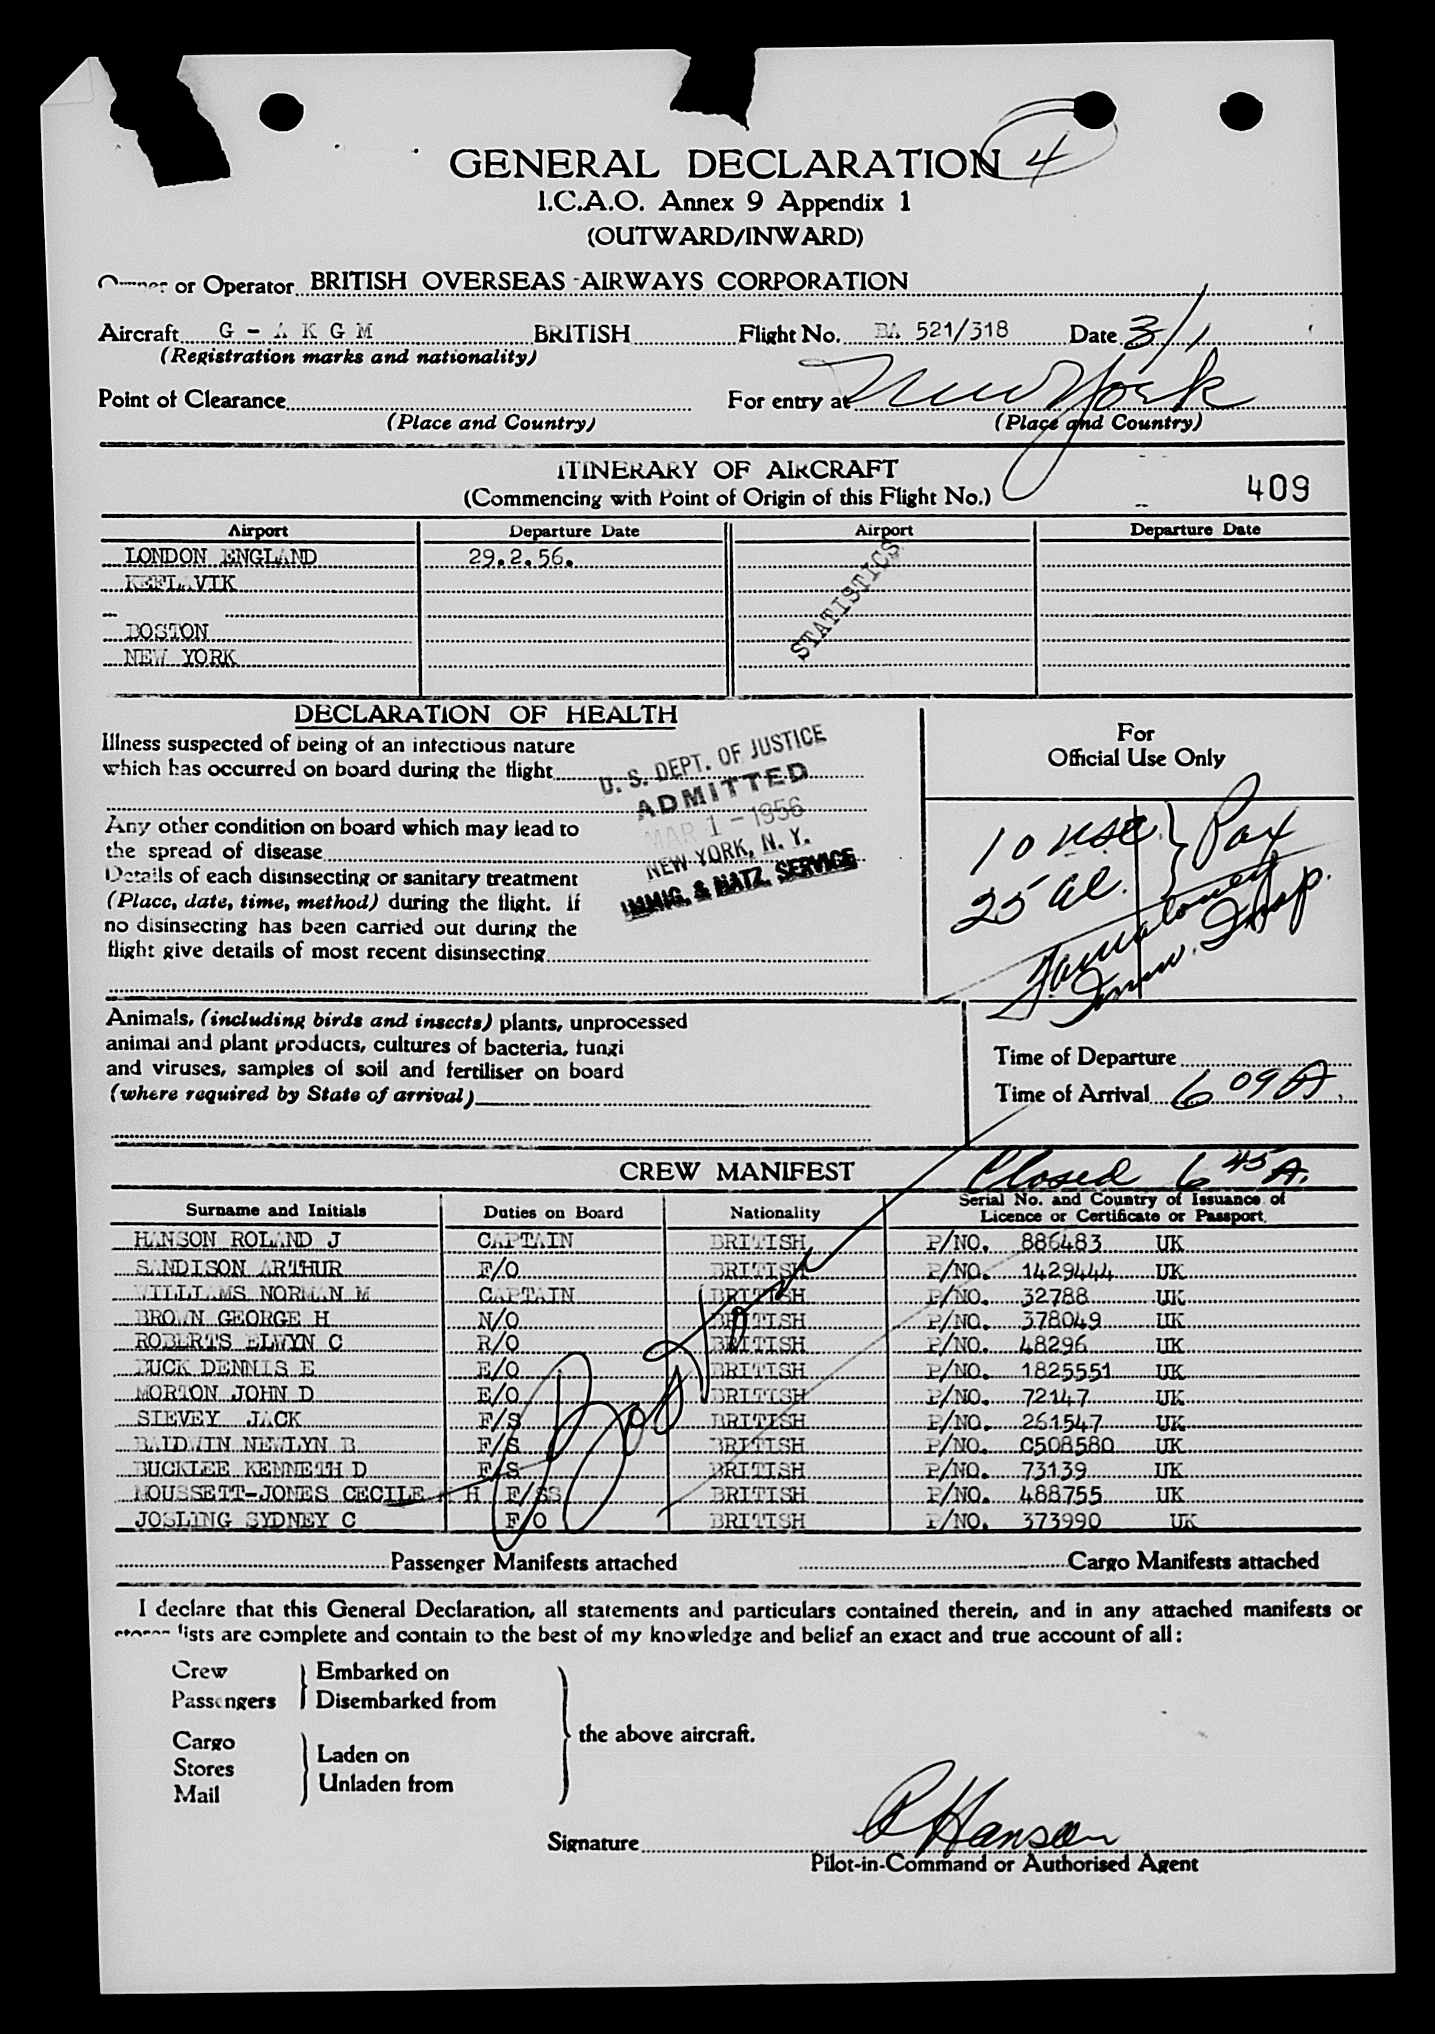 GENERAL DECLARATION 4
I.C.A.O. Annex 9 Appendix 1
(OUTWARD/INWARD)
Owner or Operator BRITISH OVERSEAS AIRWAYS CORPORATION
Aircraft G - A K G M BRITISH Flight No. BA 521/318 Date 3/1
(Registration marks and nationality)
Point of Clearance For entry at New York
(Place and Country) (Place and Country)
ITINERARY OF AIRCRAFT
(Commencing with Point of Origin of this Flight No.) 409
Airport Departure Date Airport Departure Date
LONDON ENGLAND 29.2.56.
KEFLAVIK
BOSTON
NEW YORK
STATISTICS
DECLARATION OF HEALTH
Illness suspected of being of an infectious nature
which has occurred on board during the flight
Any other condition on board which may lead to
the spread of disease
Details of each disinsecting or sanitary treatment
(Place, date, time, method) during the flight. If
no disinsecting has been carried out during the
flight give details of most recent disinsecting
U. S. DEPT. OF JUSTICE
ADMITTED
MAR 1 - 1956
NEW YORK, N. Y.
IMMIG. & NATZ. SERVICE
For
Official Use Only
10 USC } Pax
25 al.
Imm. Insp.
Animals, (including birds and insects) plants, unprocessed
animal and plant products, cultures of bacteria, fungi
and viruses, samples of soil and fertiliser on board
(where required by State of arrival)
Time of Departure
Time of Arrival 6 09 A
CREW MANIFEST Closed 6 45 A.
Surname and Initials Duties on Board Nationality Serial No. and Country of Issuance of
Licence or Certificate or Passport.
HANSON ROLAND J CAPTAIN BRITISH P/NO. 886483 UK
SANDISON ARTHUR F/O BRITISH P/NO. 1429444 UK
WILLIAMS NORMAN M CAPTAIN BRITISH P/NO. 32788 UK
BROWN GEORGE H N/O BRITISH P/NO. 378049 UK
ROBERTS ELWYN C R/O BRITISH P/NO. 48296 UK
DUCK DENNIS E E/O BRITISH P/NO. 1825551 UK
MORTON JOHN D E/O BRITISH P/NO. 72147 UK
STEVEY JACK F/S BRITISH P/NO. 261547 UK
BALDWIN NEWLYN B F/S BRITISH P/NO. C508580 UK
BUCKLEE KENNETH D F/S BRITISH P/NO. 73139 UK
MOUSSETT-JONES CECILE H F/SS BRITISH P/NO. 488755 UK
JOSLING SYDNEY C F/O BRITISH P/NO. 373990 UK
Boston
Passenger Manifests attached Cargo Manifests attached
I declare that this General Declaration, all statements and particulars contained therein, and in any attached manifests or
stores lists are complete and contain to the best of my knowledge and belief an exact and true account of all:
Crew } Embarked on
Passengers } Disembarked from
the above aircraft.
Cargo
Stores } Laden on
Mail } Unladen from
Signature R Hanson
Pilot-in-Command or Authorised Agent